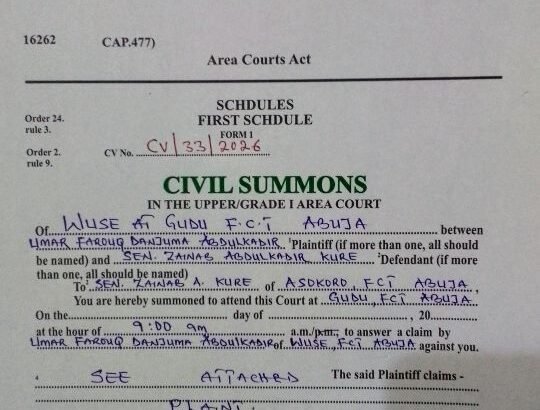 16262 CAP.477)
Area Courts Act
SCHDULES
Order 24. FIRST SCHDULE
rule 3. FORM 1
Order 2. CV No. CV/33/2026
rule 9.
CIVIL SUMMONS
IN THE UPPER/GRADE I AREA COURT
Of WUSE AT GUDU F.C.T ABUJA between
UMAR FAROUQ DANJUMA ABDULKADIR ¹Plaintiff (if more than one, all should
be named) and SEN. ZAINAB ABDULKADIR KURE ²Defendant (if more
than one, all should be named)
To³ SEN. ZAINAB A. KURE of ASOKORO, FCT ABUJA,
You are hereby summoned to attend this Court at GUDU, FCT ABUJA
On the day of , 20
at the hour of 9:00 am a.m./p.m., to answer a claim by
UMAR FAROUQ DANJUMA ABDULKADIR of WUSE, FCT ABUJA against you.
4 SEE ATTACHED The said Plaintiff claims -
PLAINT.